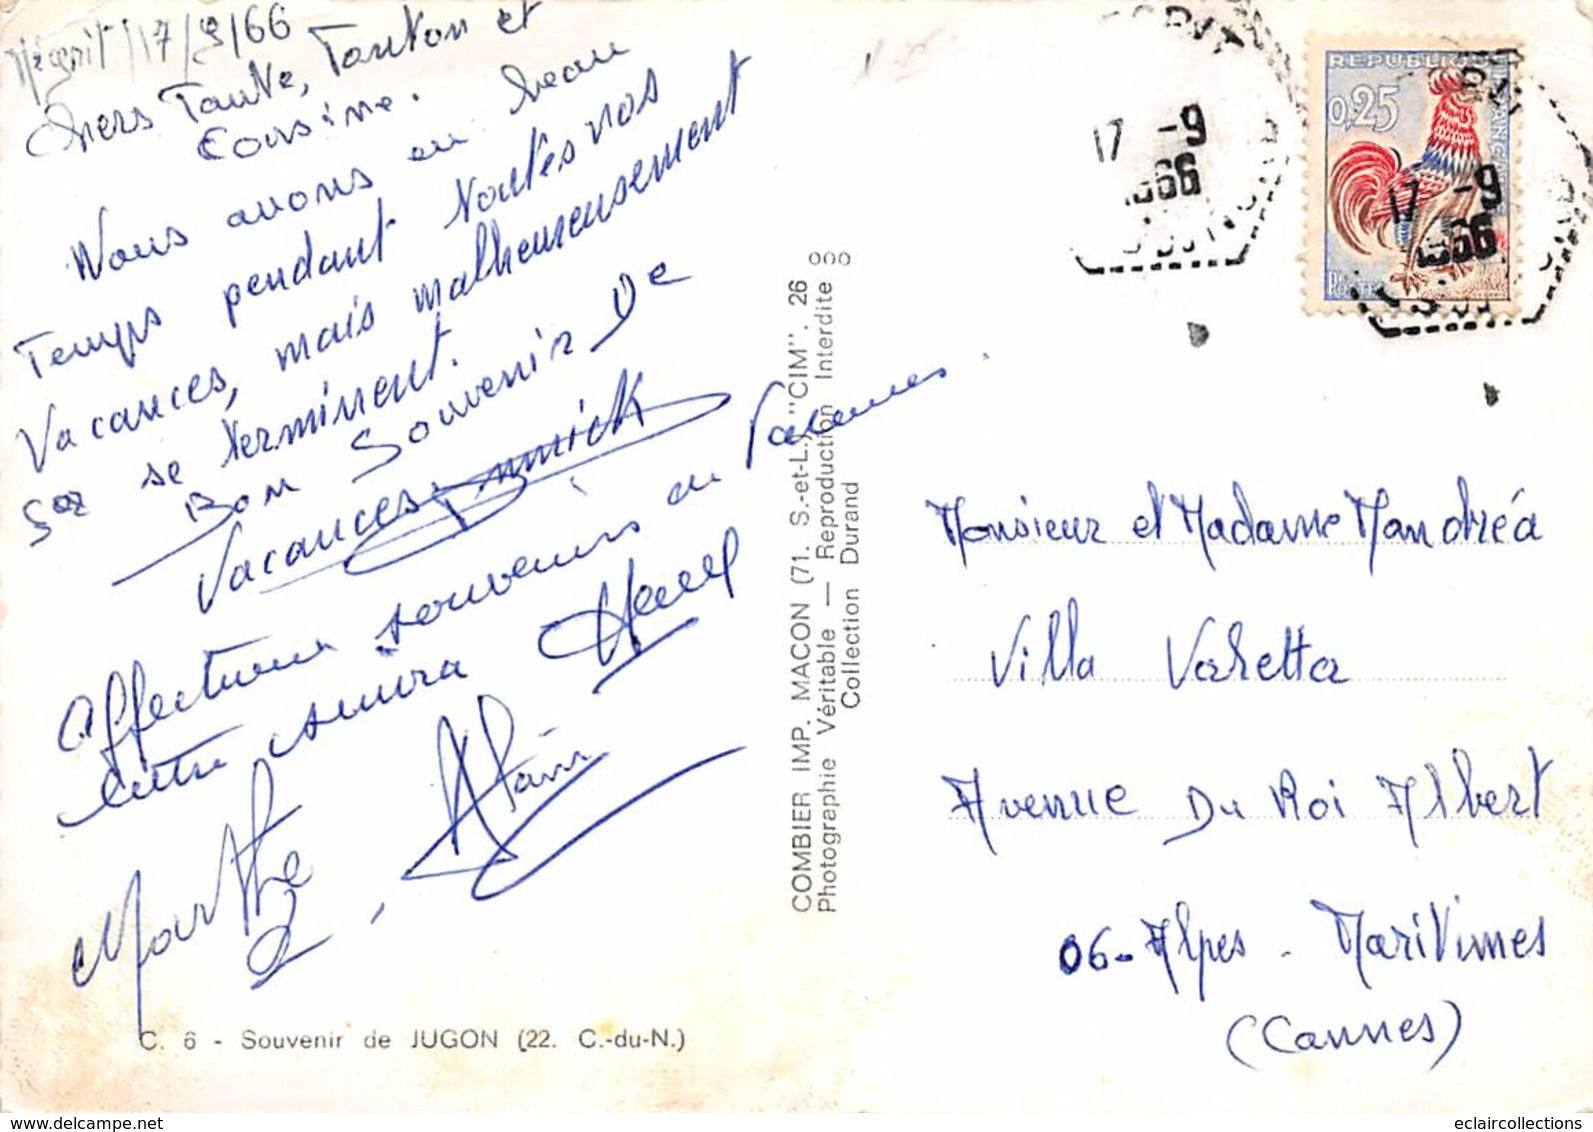 Mégrit 17/9/66
Chers Tante, Tonton et
Cousine.
Nous avons eu beau
Temps pendant toutes nos
Vacances, mais malheureusement
se terminent.
Bon Souvenir De
Vacances Annick
Affectueux souvenirs de Vacances.
Marthe Alain
C. 6 - Souvenir de JUGON (22. C.-du-N.)
COMBIER IMP. MACON (71. S.-et-L.) "CIM". 26
Photographie Véritable — Reproduction Interdite
Collection Durand
17 -9
1966
REPUBLIQUE FRANÇAISE
0,25
POSTES
17 -9
1966
Monsieur et Madame Mandréa
Villa Varetta
Avenue Du Roi Albert
06-Alpes-Maritimes
(Cannes)
eclaircollections